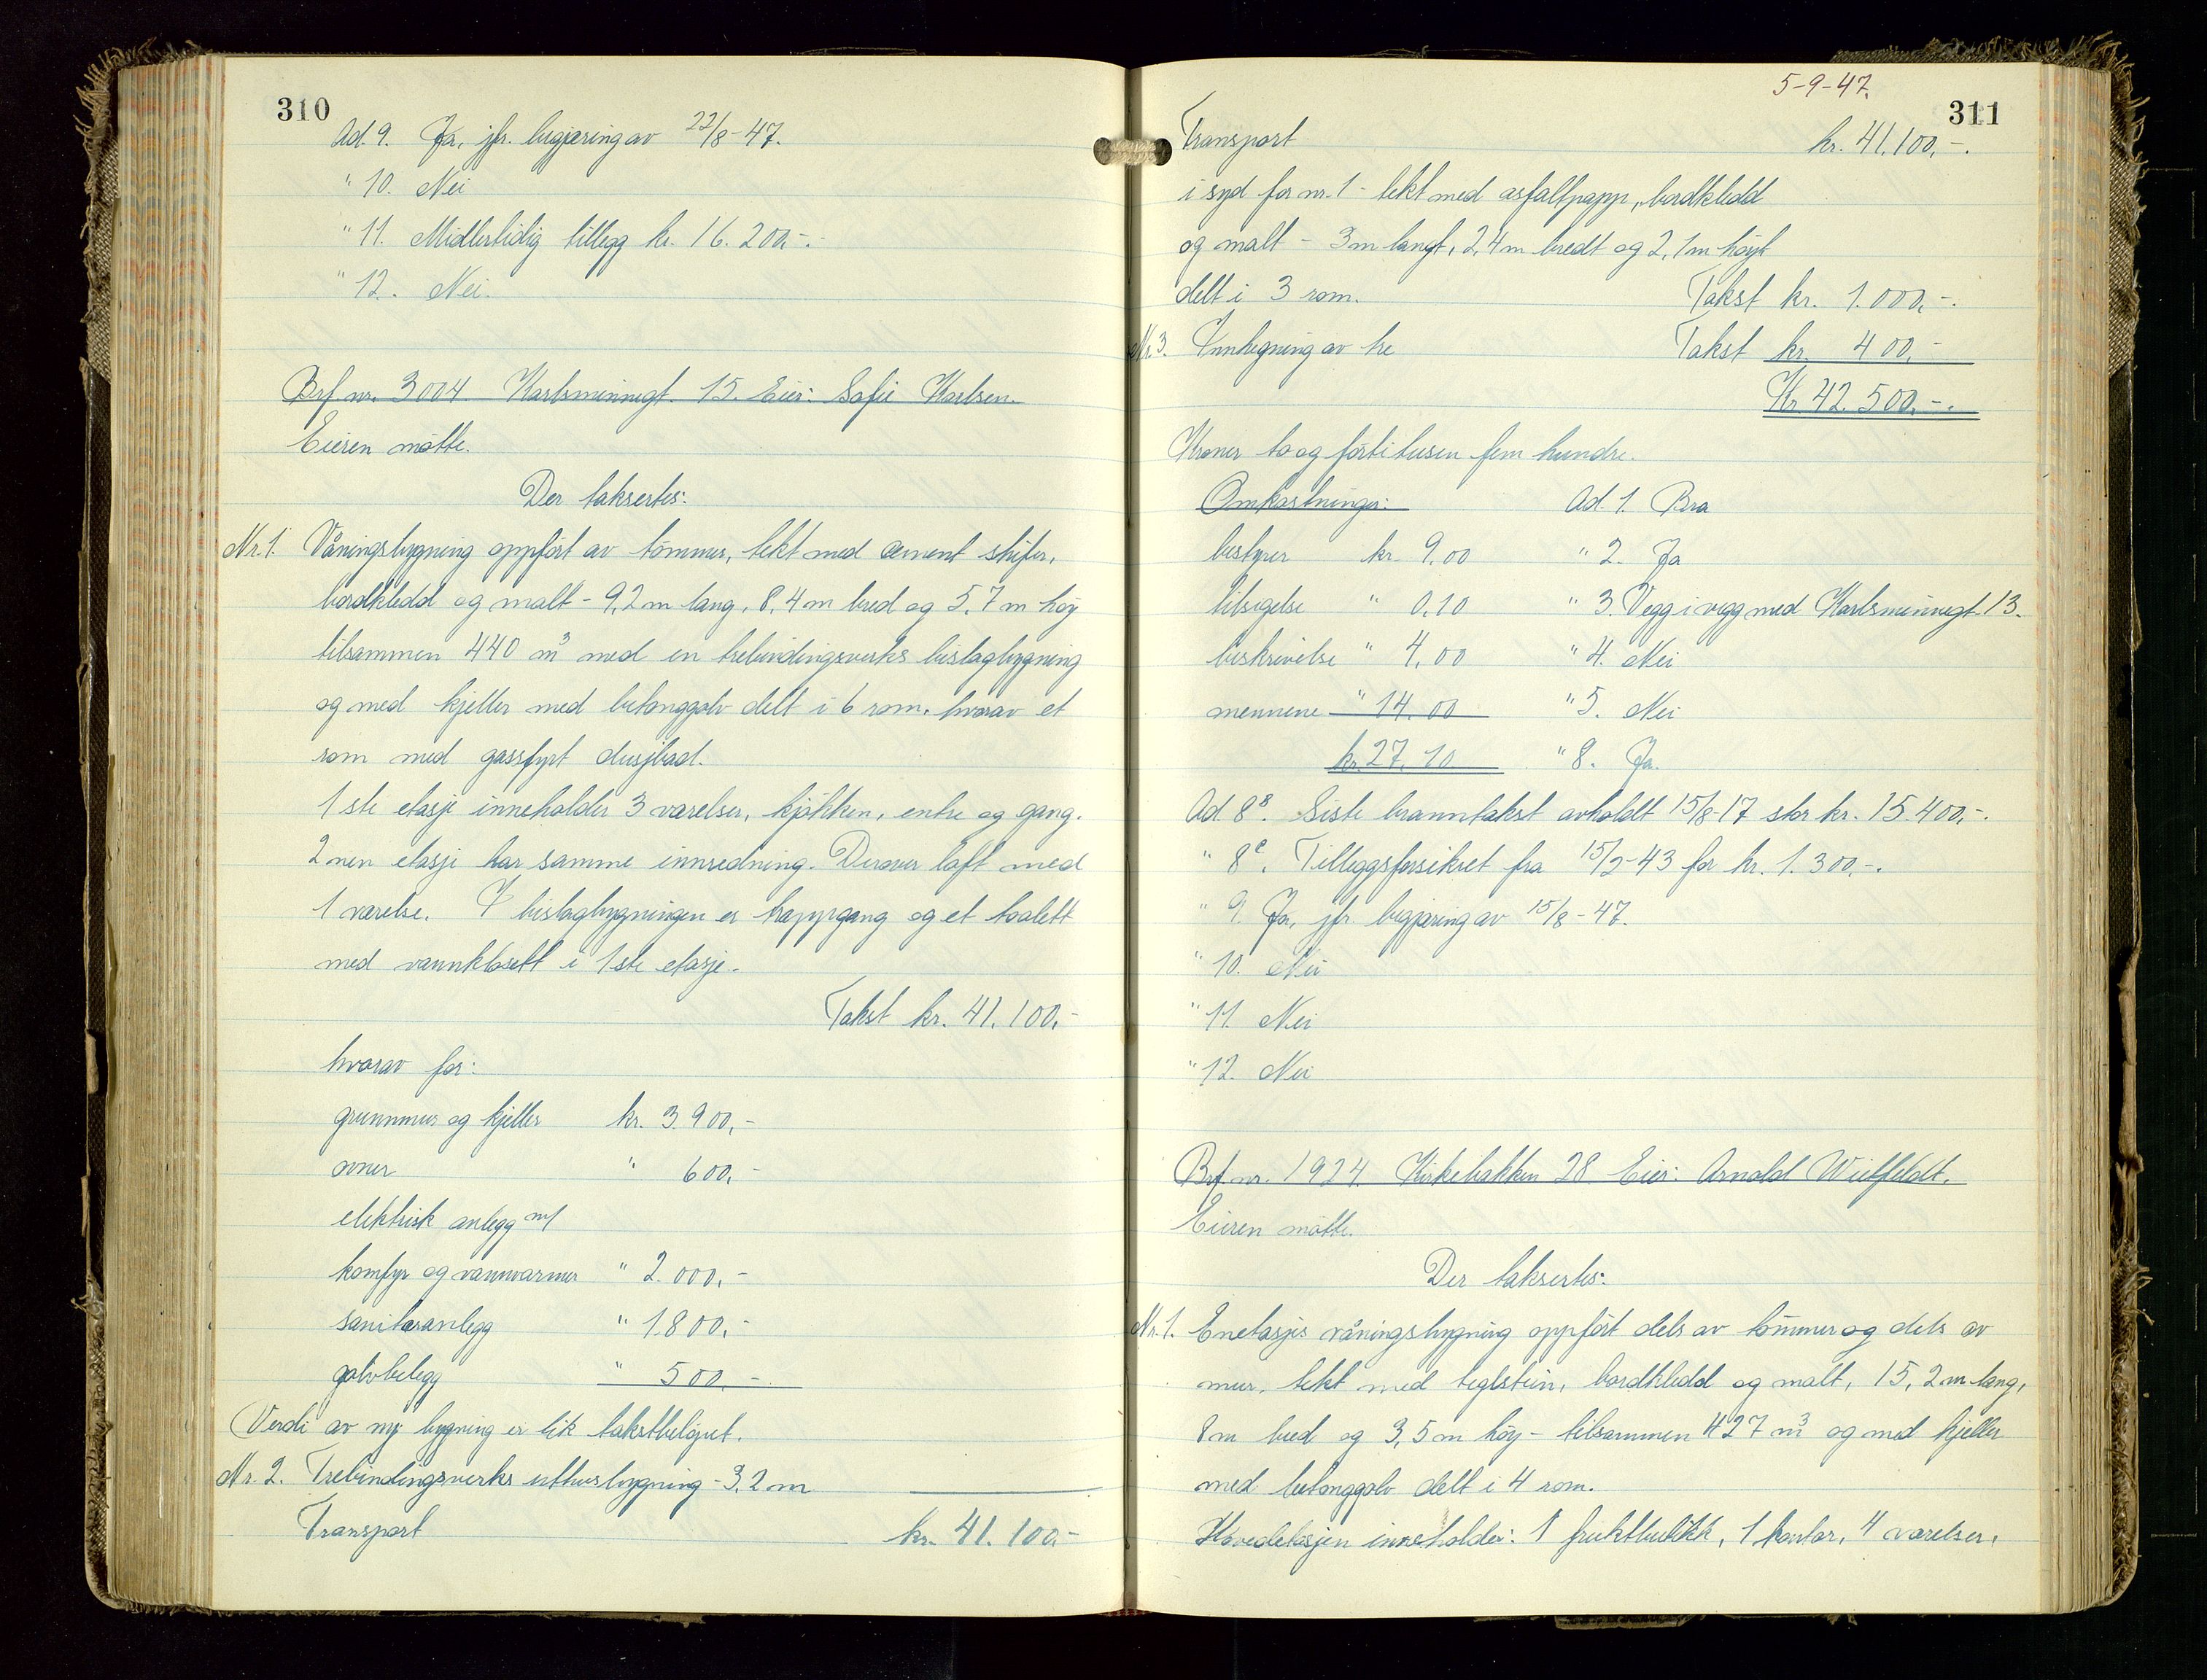 310
Ad. 9. Ja, jfr. begjæring av 22/8-47.
" 10. Nei
" 11. Midlertidig tillegg kr. 16.200,-.
" 12. Nei.
Brf. nr. 3004 Karlsminnegt. 15. Eier: Sofie Karlsen.
Eieren møtte.
Der taksertes:
Nr. 1. Våningsbygning oppført av tømmer, tekt med cement skifer,
bordkledd og malt - 9,2 m lang, 8,4 m bred og 5,7 m høy
tilsammen 440 m³ med en trebindingsverks bislagbygning
og med kjeller med betonggolv delt i 6 rom, hvorav et
rom med gassfyrt dusjbad.
1ste etasje inneholder 3 værelser, kjøkken, entre og gang.
2nen etasje har samme innredning. Derover loft med
1 værelse. I bislagbygningen er trappgang og et toalett
med vannklosett i 1ste etasje.
Takst kr. 41.100,-
hvorav for:
grunnmur og kjeller kr. 3.900,-
ovner " 600,-
elektrisk anlegg m/
komfyr og vannvarmer " 2.000,-
sanitæranlegg " 1.800,-
golvbelegg " 500,-
Verdi av ny bygning er lik takstbeløpet.
Nr. 2. Trebindingsverks uthusbygning - 3,2 m
Transport kr. 41.100,-
5-9-47.
311
Transport kr. 41.100,-.
i syd for nr. 1 - tekt med asfaltpapp, bordkledd
og malt - 3 m langt, 2,4 m bredt og 2,1 m høyt
delt i 3 rom. Takst kr. 1.000,-.
Nr. 3. Innhegning av tre Takst kr. 400,-
Kr. 42.500,-.
Kroner to og førti tusen fem hundre.
Omkostninger: Ad. 1. Bra
bestyrer kr. 9,00 " 2. Ja
tilsigelse " 0,10 " 3. Vegg i vegg med Karlsminnegt. 13.
beskrivelse " 4,00 " 4. Nei
mennene " 14.00 " 5. Nei
kr. 27.10 " 8. Ja.
Ad 8ª. Siste branntakst avholdt 15/8-17 stor kr. 15.400,-.
" 8c. Tilleggsforsikret fra 15/2-43 for kr. 1.300,-.
" 9. Ja, jfr. begjæring av 15/8-47.
" 10. Nei
" 11. Nei
" 12. Nei
Brf. nr. 1924 Kirkebakken 28 Eier: Arnold Wielfeldt.
Eieren møtte.
Der taksertes:
Nr. 1. Enetasjes våningsbygning oppført dels av tømmer og dels av
mur, tekt med teglstein, bordkledd og malt, 15,2 m lang,
8 m bred og 3,5 m høy - tilsammen 427 m³ og med kjeller
med betonggolv delt i 4 rom.
Hovedetasjen inneholder: 1 fruktbutikk, 1 kontor, 4 værelser,